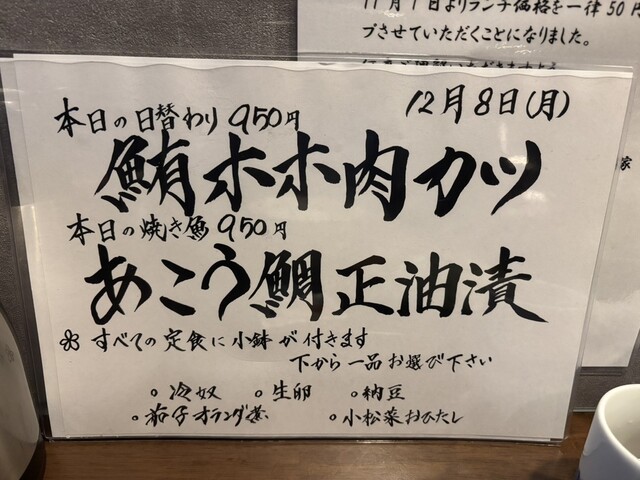 11月1日よりランチ価格を一律50円
プさせていただくことになりました。
12月8日(月)
本日の日替わり950円
鮪ホホ肉カツ
本日の焼き魚950円
あこう鯛正油漬
すべての定食に小鉢が付きます
下から一品お選び下さい
。冷奴 。生卵 。納豆
。茄子オランダ煮 。小松菜おひたし
家